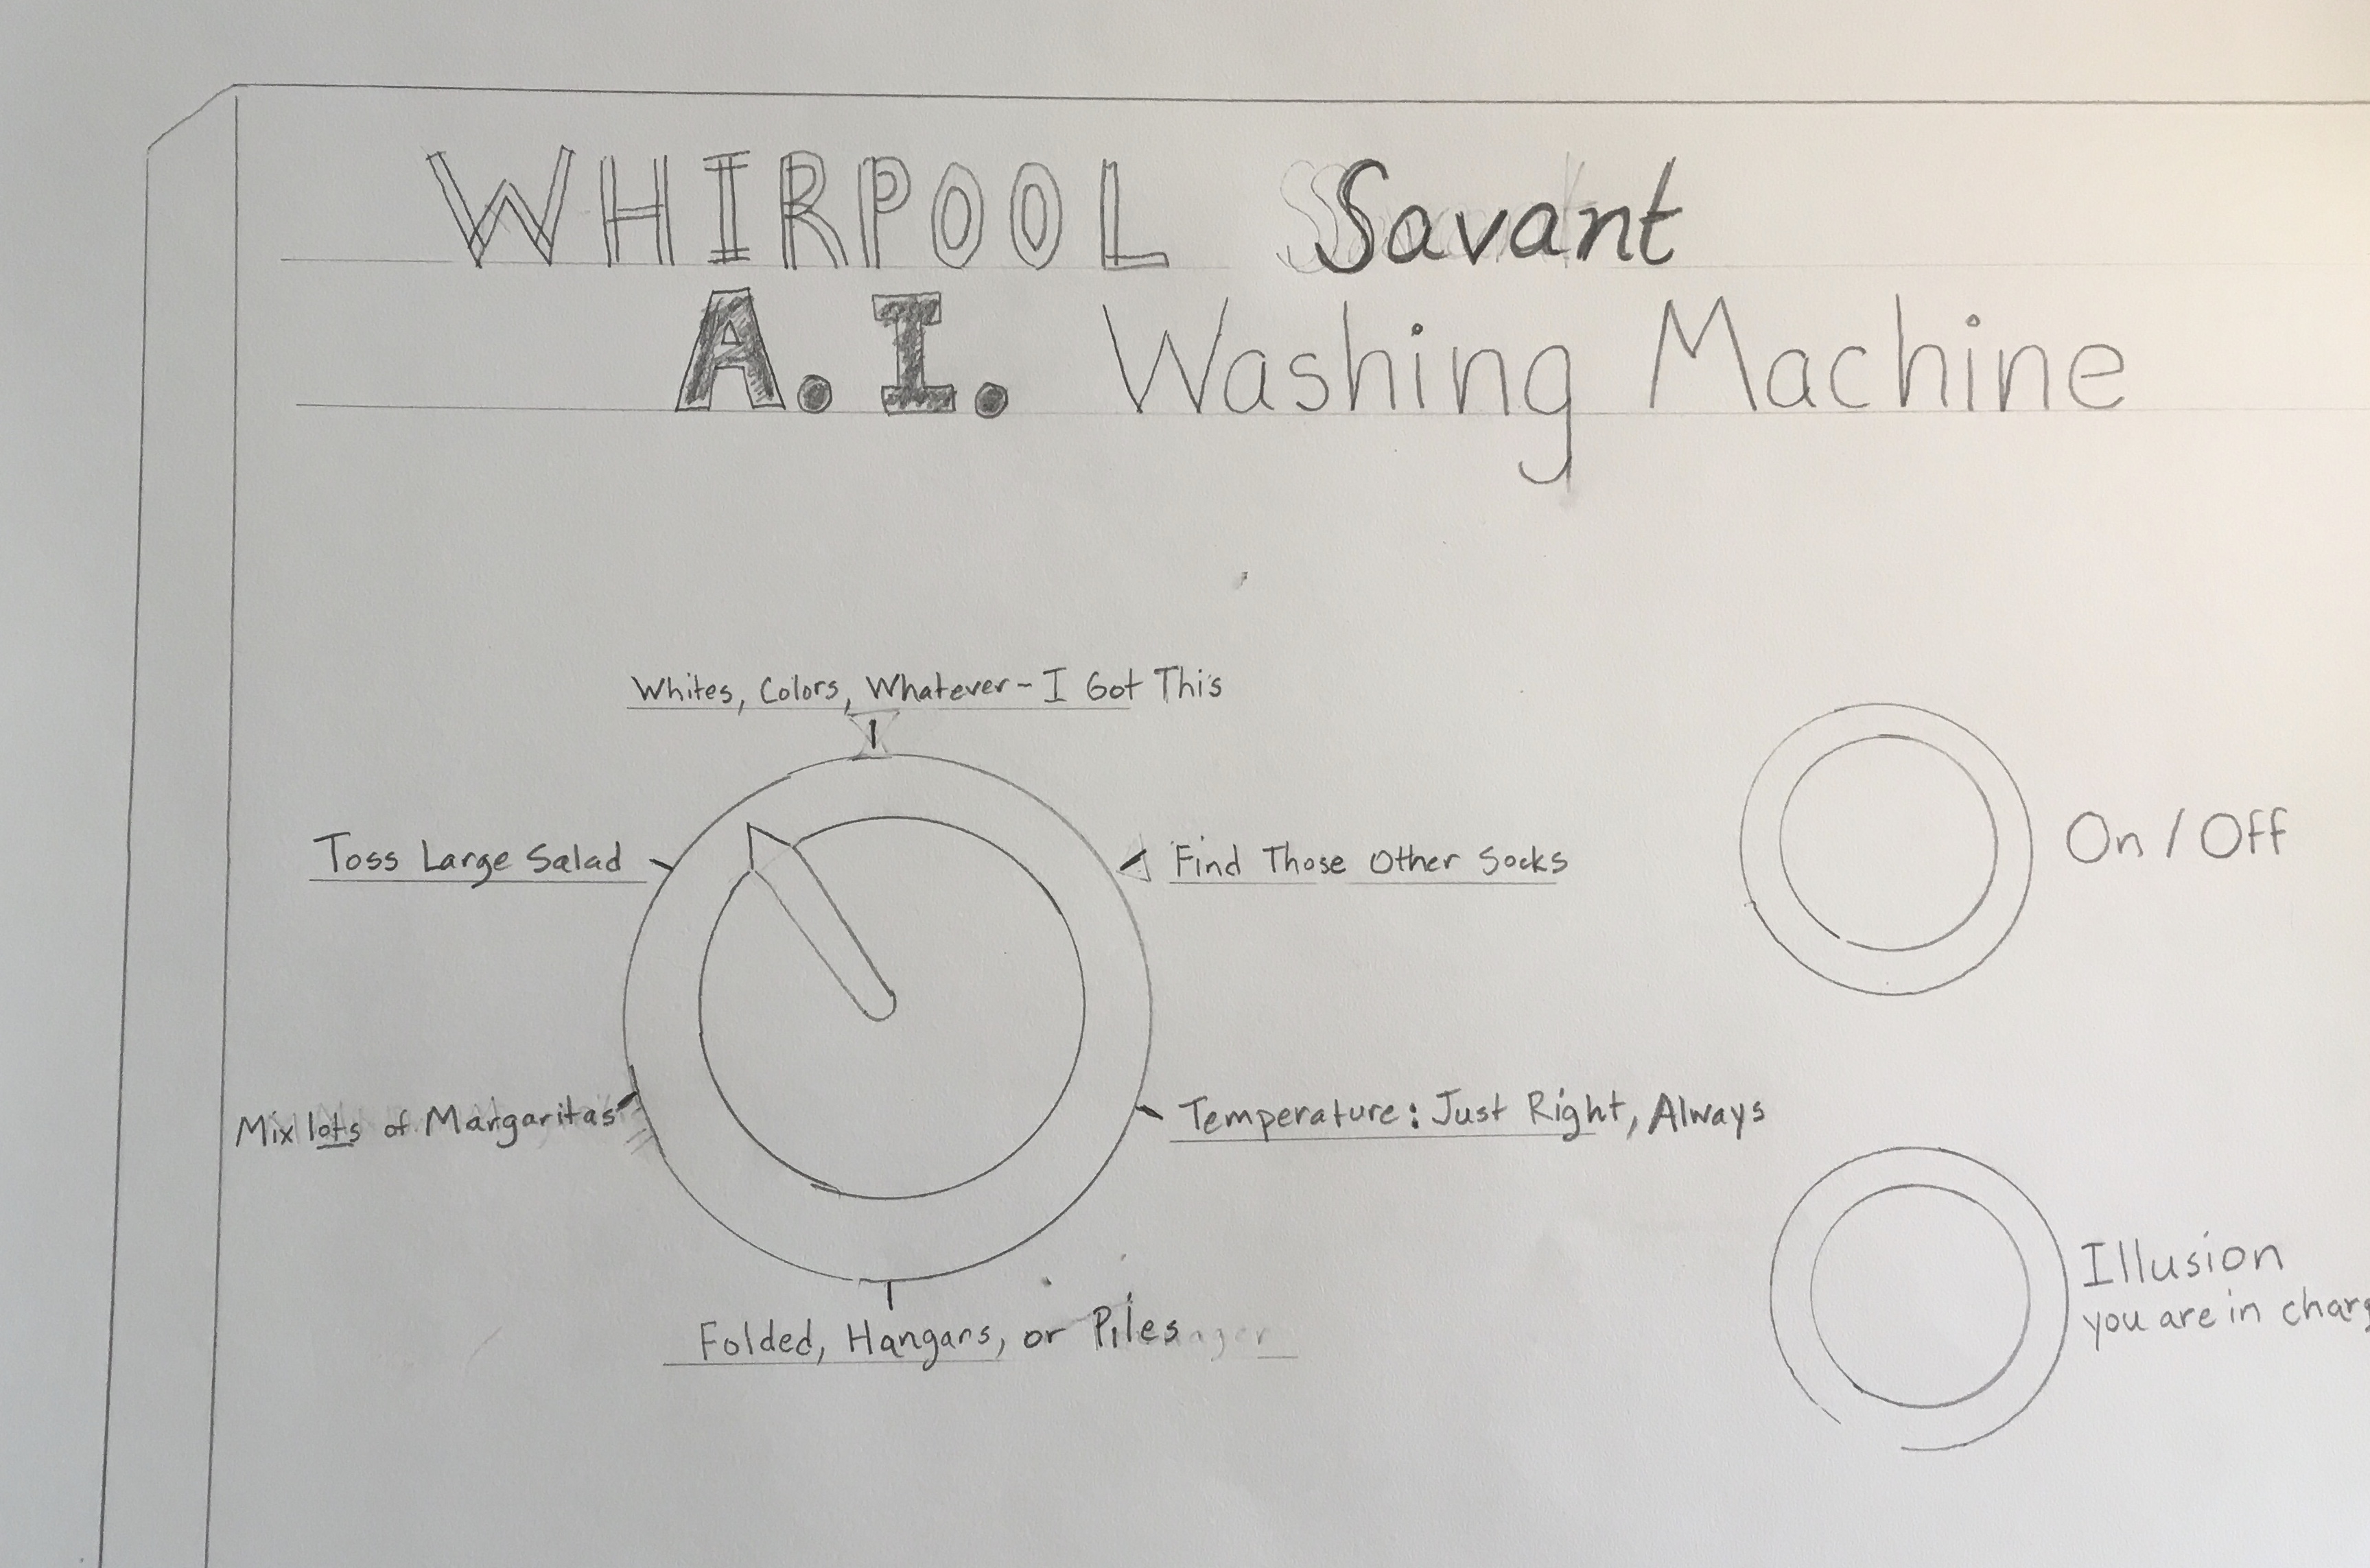 WHIRPOOL Savant
A.I. Washing Machine
Whites, Colors, Whatever - I Got This
Toss Large Salad
Find Those Other Socks
On / Off
Mix lots of Margaritas
Temperature: Just Right, Always
Illusion
you are in charg
Folded, Hangars, or Piles